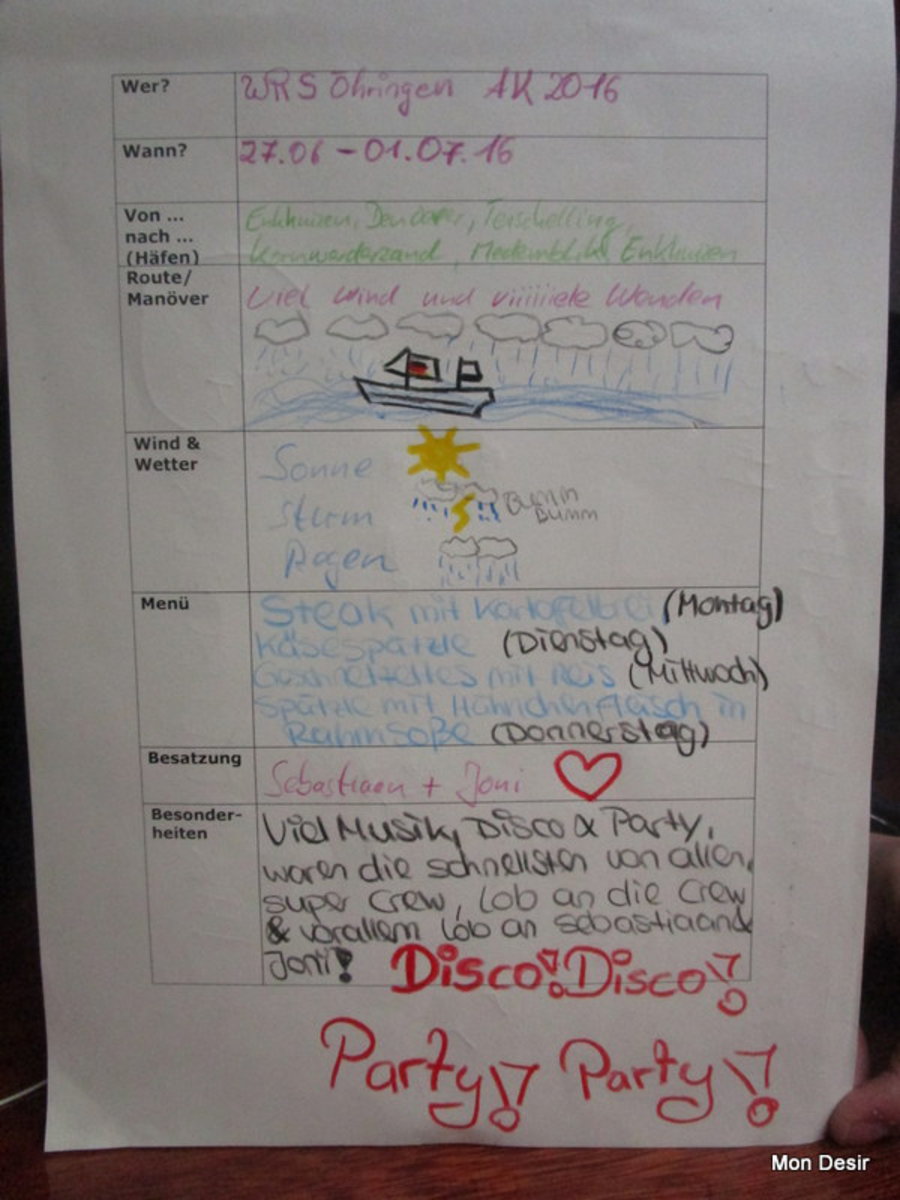 Wer? WRS Öhringen AK 2016
Wann? 27.06 – 01.07.16
Von ... Enkhuizen, Den Oever, Terschelling,
nach ... Kornwerderzand, Medemblik Enkhuizen
(Häfen)
Route/
Manöver Viel Wind und viiiiiiele Wenden
Wind & Wetter
Sonne
Sturm Bumm
Bumm
Regen
Menü Steak mit Kartoffelbrei (Montag)
Käsespätzle (Dienstag)
Geschnetzeltes mit Reis (Mittwoch)
Spätzle mit Hähnchenfleisch in
Rahmsoße (Donnerstag)
Besatzung Sebastiaan + Joni
Besonder-
heiten
Viel Musik, Disco & Party,
waren die schnellsten von allen,
super Crew, Lob an die Crew
& vorallem Lob an Sebastiaan&
Joni!
Disco! Disco!
Party! Party!
Mon Desir